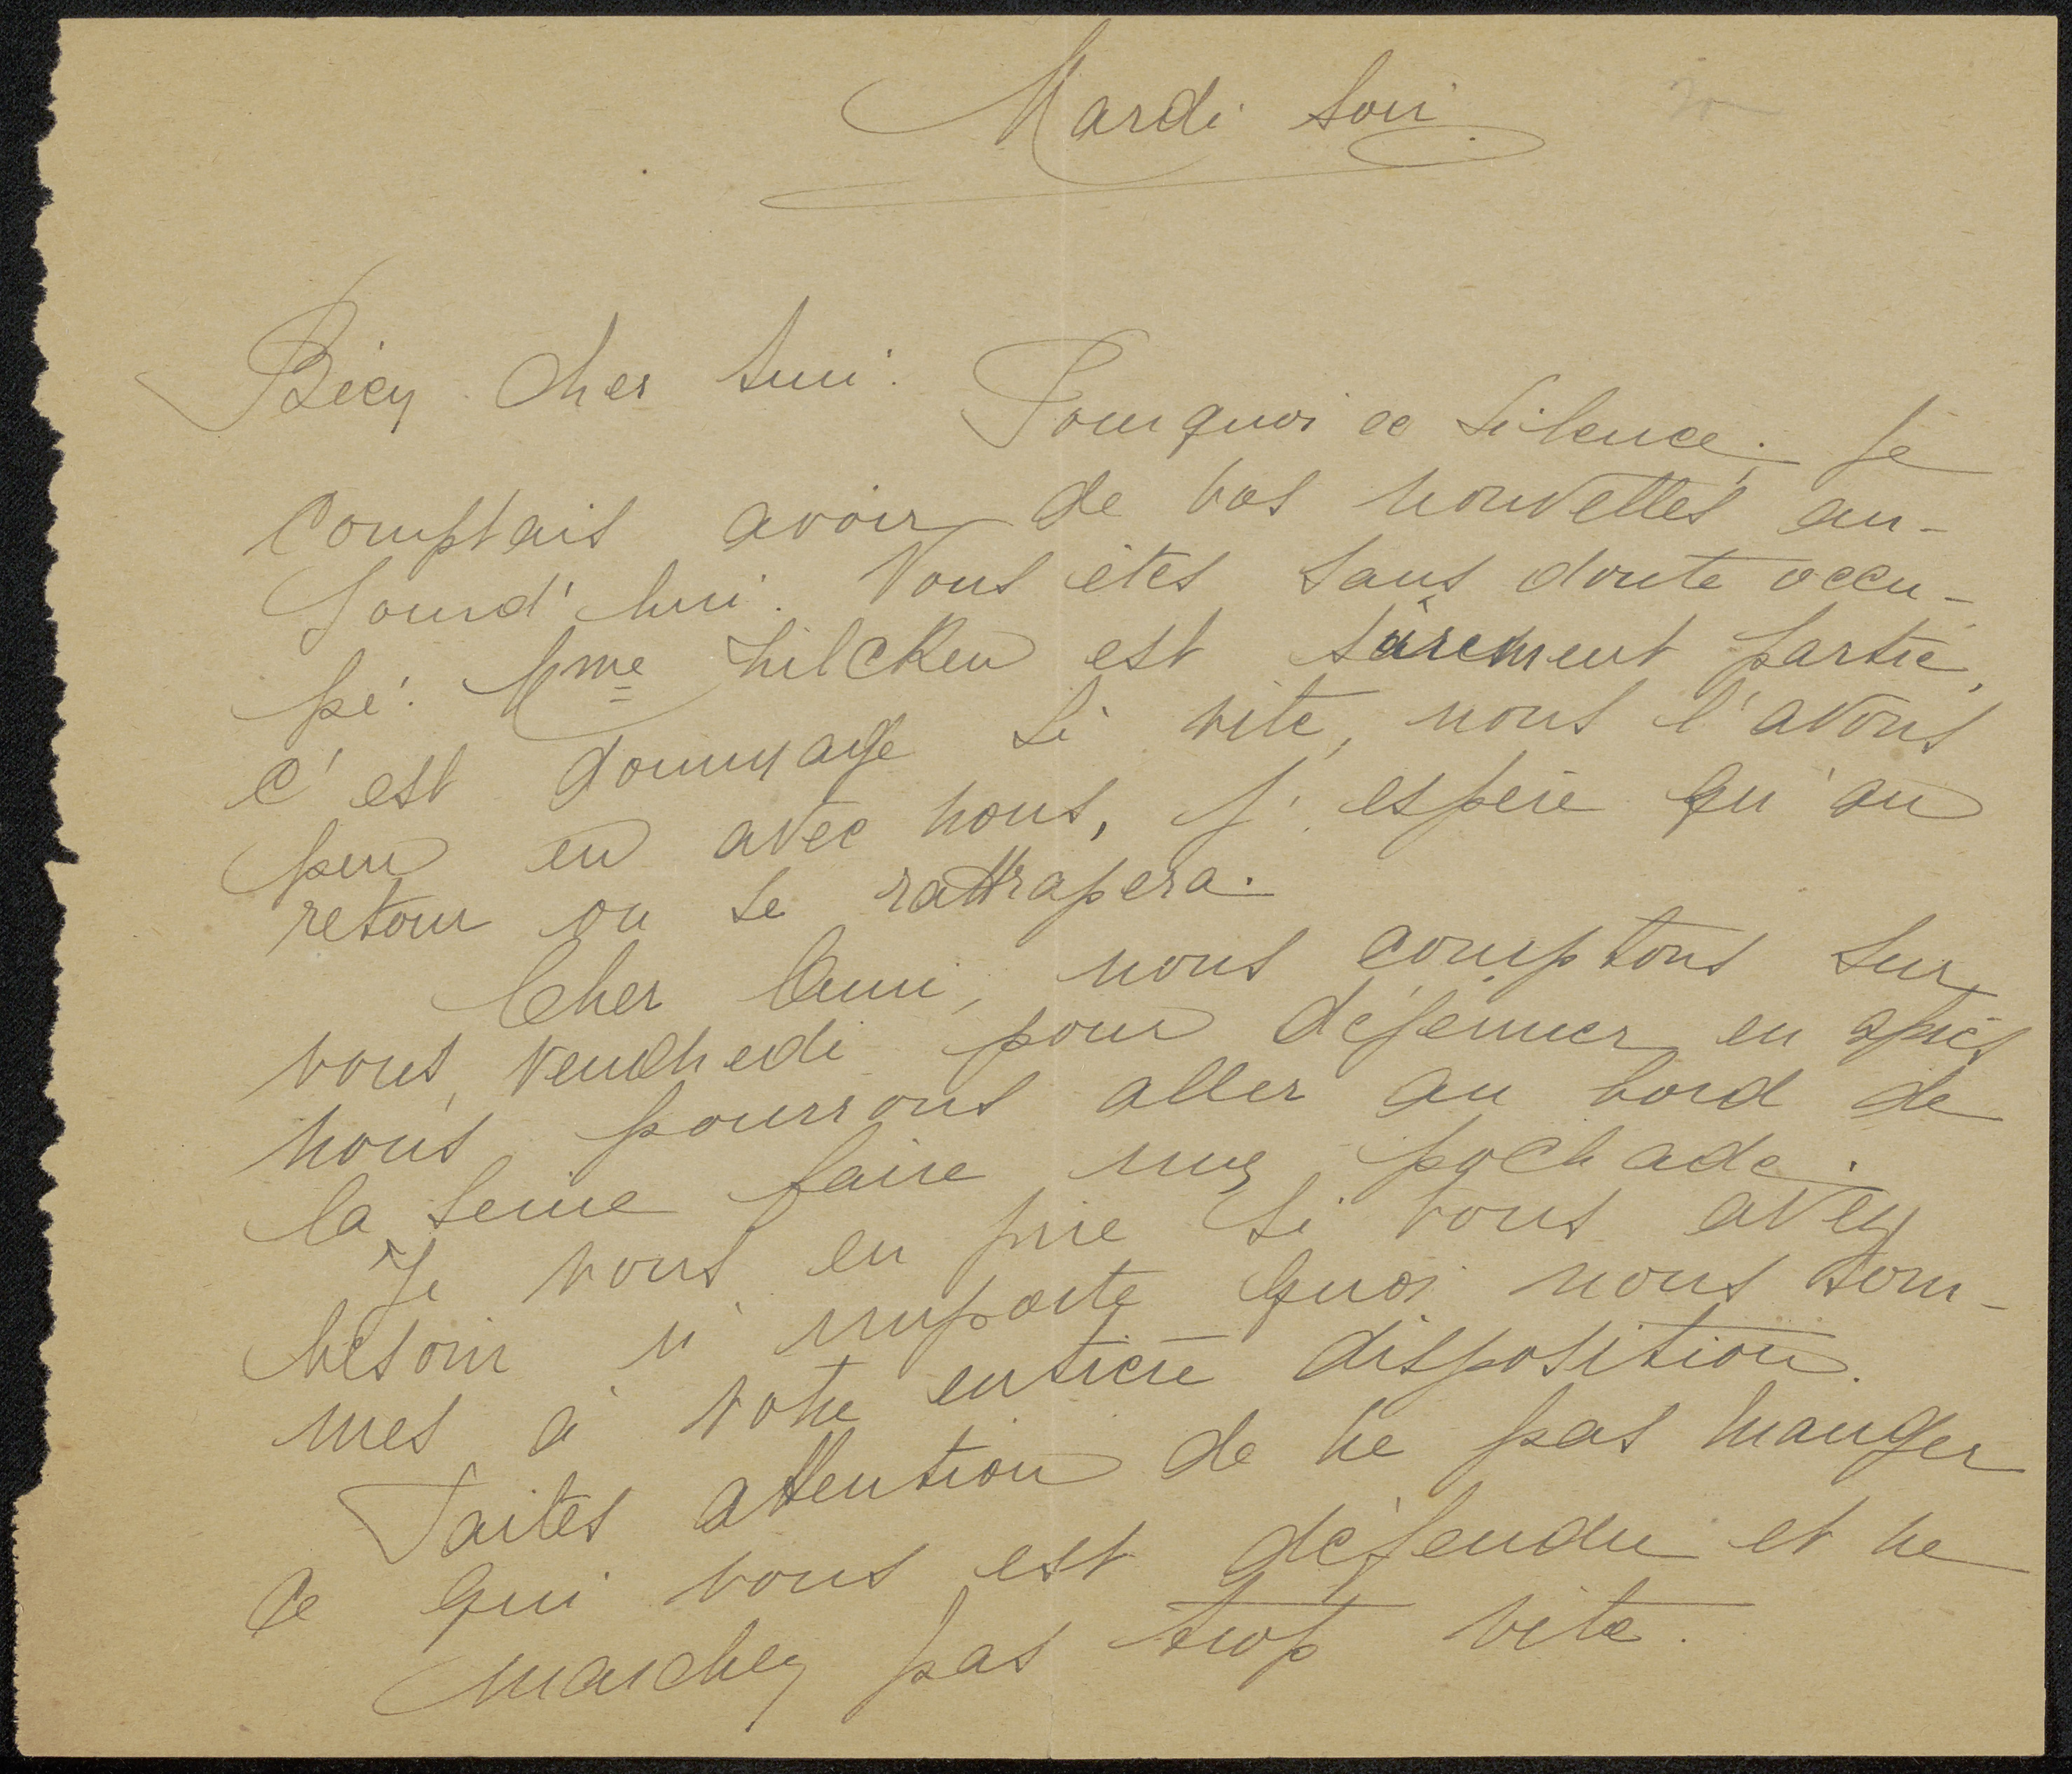 Mardi soir.
Bien cher Ami. Pourquoi ce silence; Je
comptais avoir de vos nouvelles au-
jourd'hui. Vous êtes sans doute occu-
pé. Mme Zilcken est sûrement partie,
c'est dommage si vite, nous l'avons
peu eu avec nous, j'espère qu'au
retour on se rattrapera.
Cher Ami, nous comptons sur
vous, vendredi pour déjeuner, en après
nous pourrons aller au bord de
la Seine faire une pochade.
Je vous en prie si vous avez
besoin n'importe quoi nous som-
mes à votre entière disposition.
Faites attention de ne pas manger
ce qui vous est défendu et ne
marchez pas trop vite.